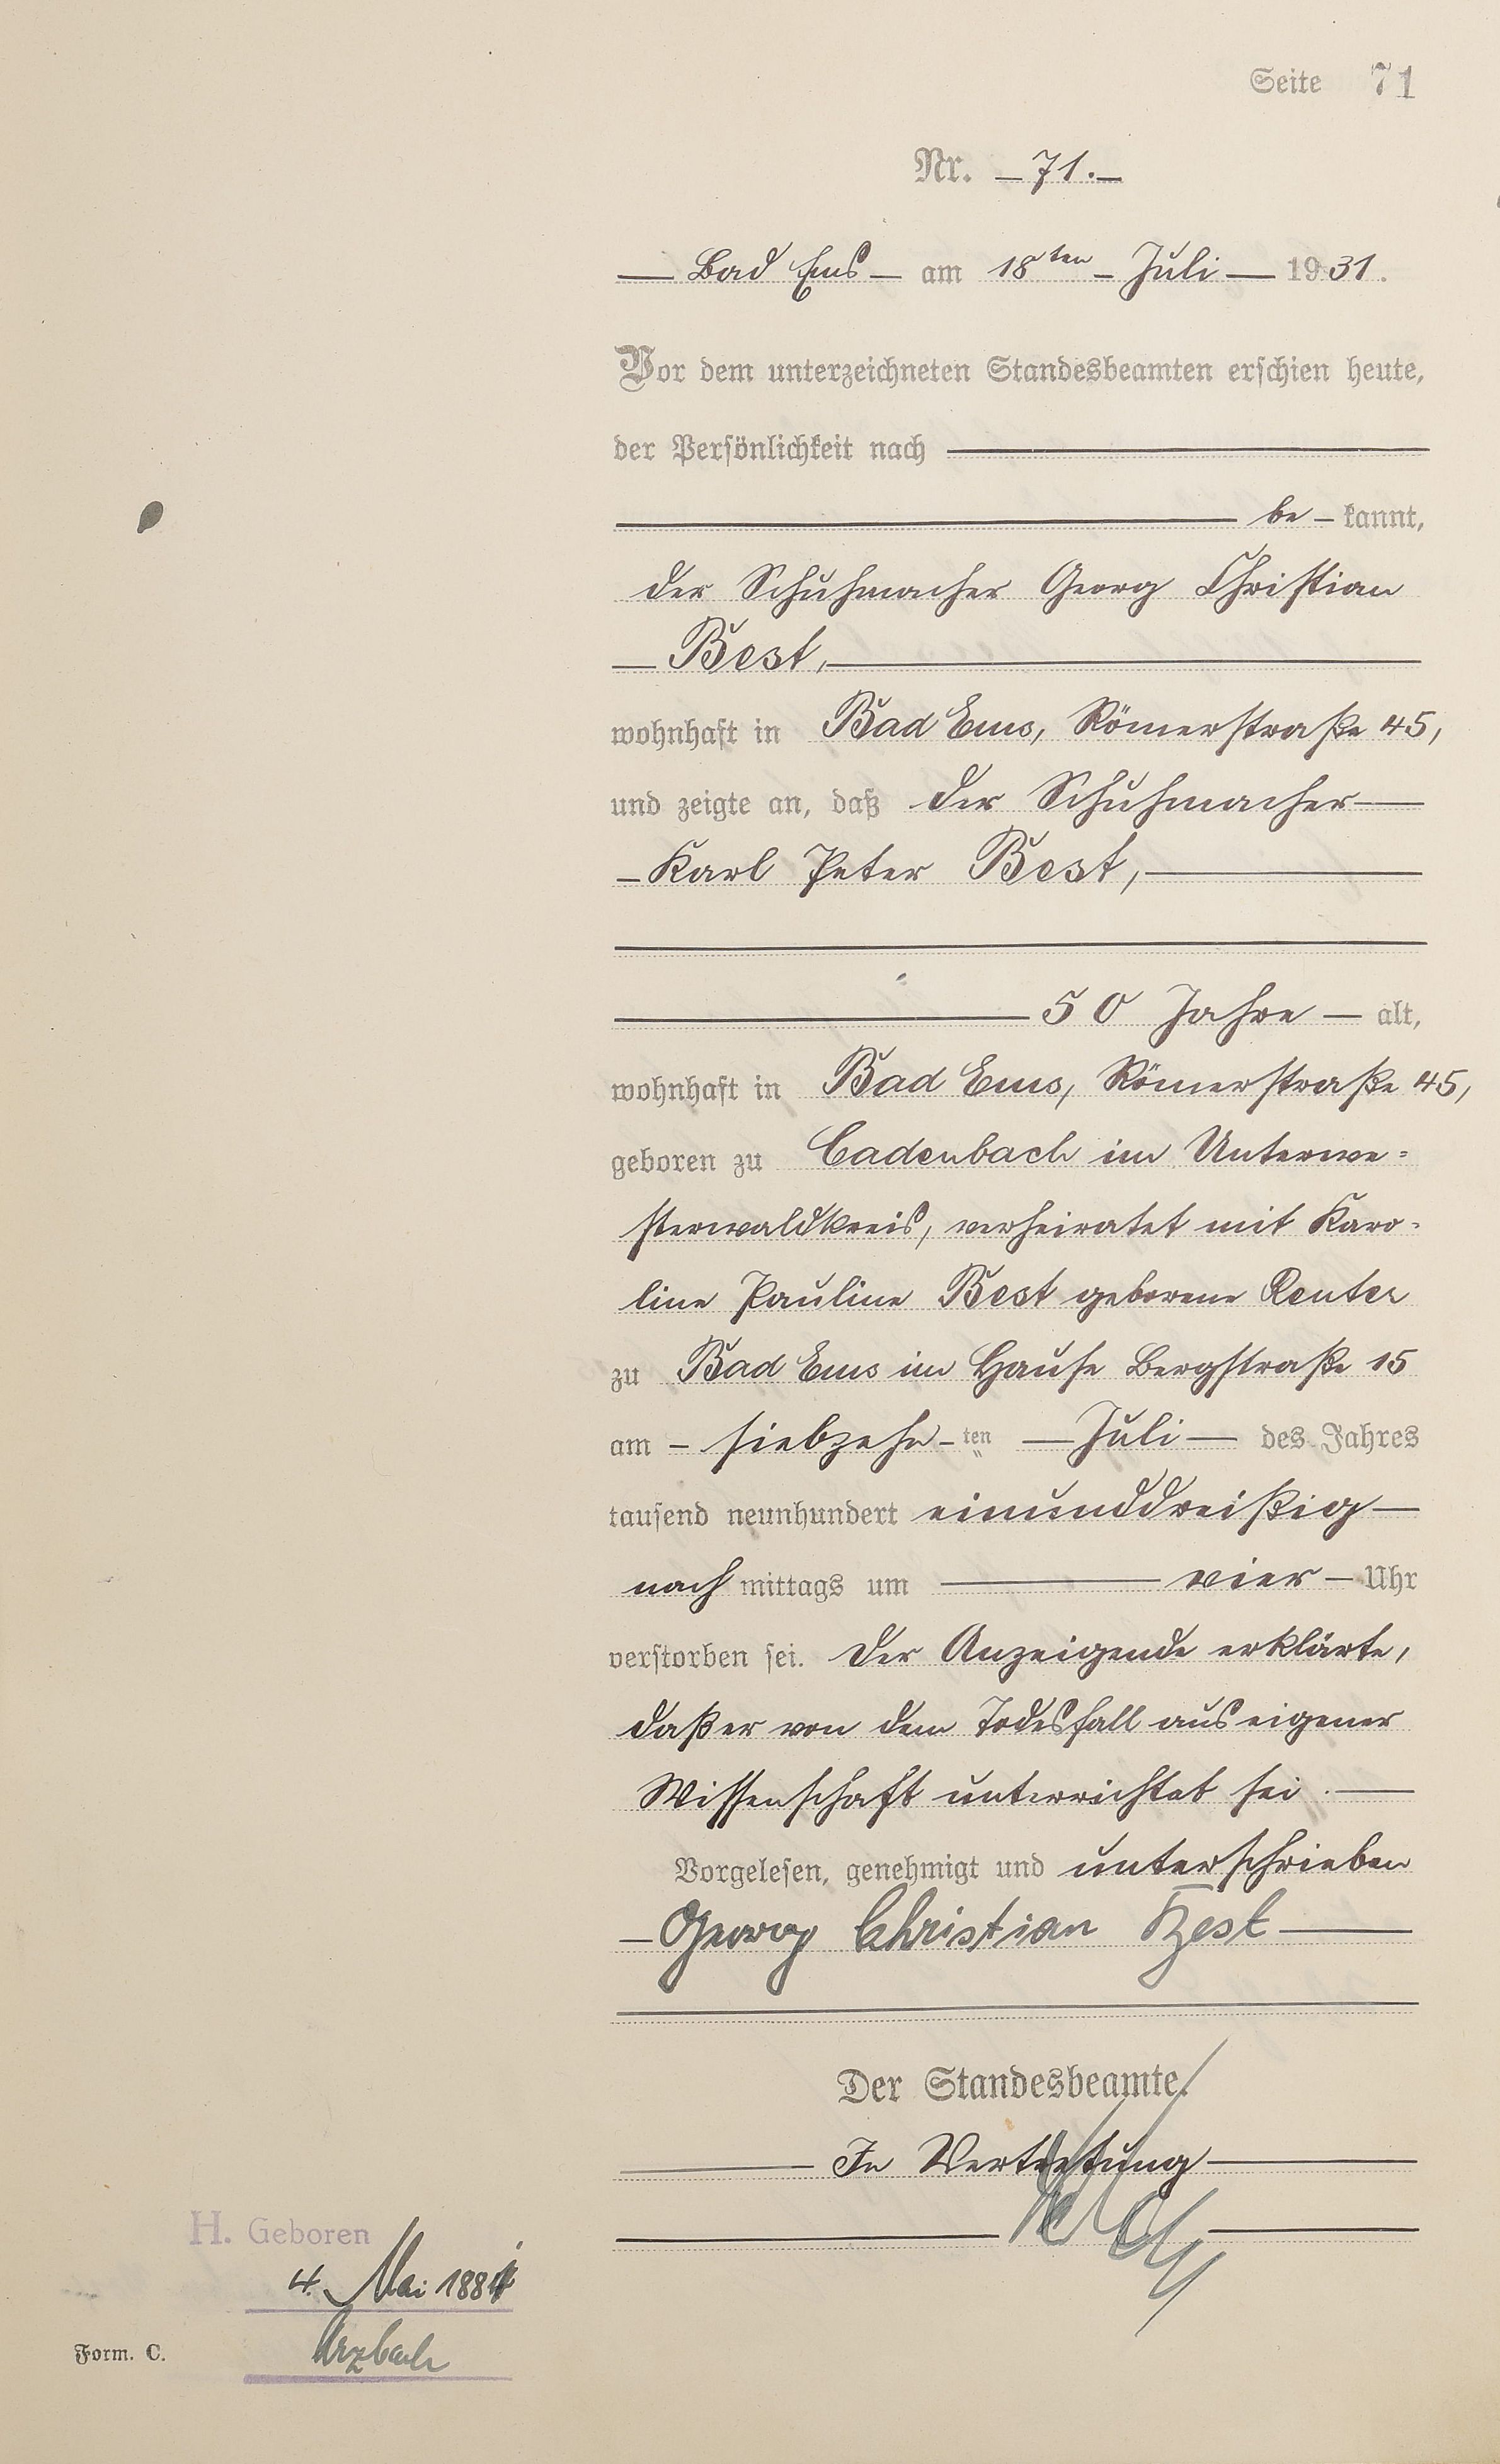 Seite 71
Nr. 71.
Bad Ems am 18ten Juli 1931.
Vor dem unterzeichneten Standesbeamten erschien heute,
der Persönlichkeit nach
be kannt,
der Schuhmacher Georg Christian
Best,
wohnhaft in Bad Ems, Römerstraße 45,
und zeigte an, daß der Schuhmacher
Karl Peter Best,
50 Jahre alt,
wohnhaft in Bad Ems, Römerstraße 45,
geboren zu Cadenbach im Unterwe=
sterwaldkreis, verheiratet mit Karo-
line Pauline Best geborene Reuter
zu Bad Ems im Hause Bergstraße 15
am siebzehn ten Juli des Jahres
tausend neunhundert einunddreißig
nach mittags um vier Uhr
verstorben sei. Der Anzeigende erklärte,
daß er von dem Todesfall aus eigener
Wissenschaft unterrichtet sei.
Vorgelesen, genehmigt und unterschrieben
Georg Christian Best
Der Standesbeamte.
In Vertretung
H. Geboren
4. Mai 1881
Arzbach
Form. C.